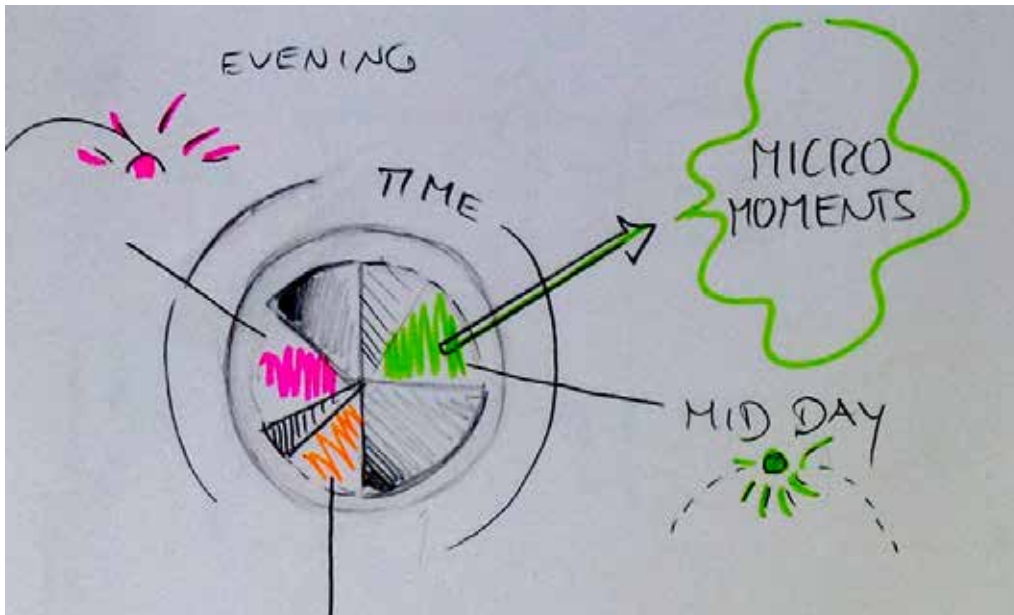 EVENING
TIME
MICRO
MOMENTS
MID DAY